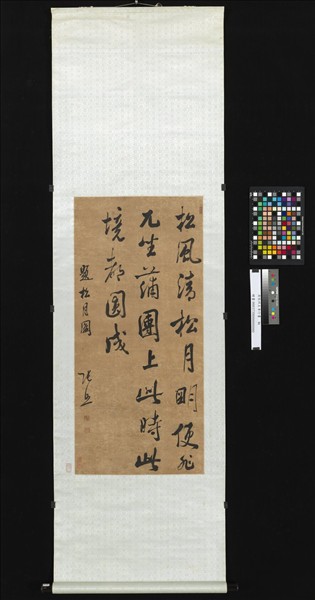 松風清松月明便非
兀坐蒲團上此時此
境都圓成
題松月圖
張照